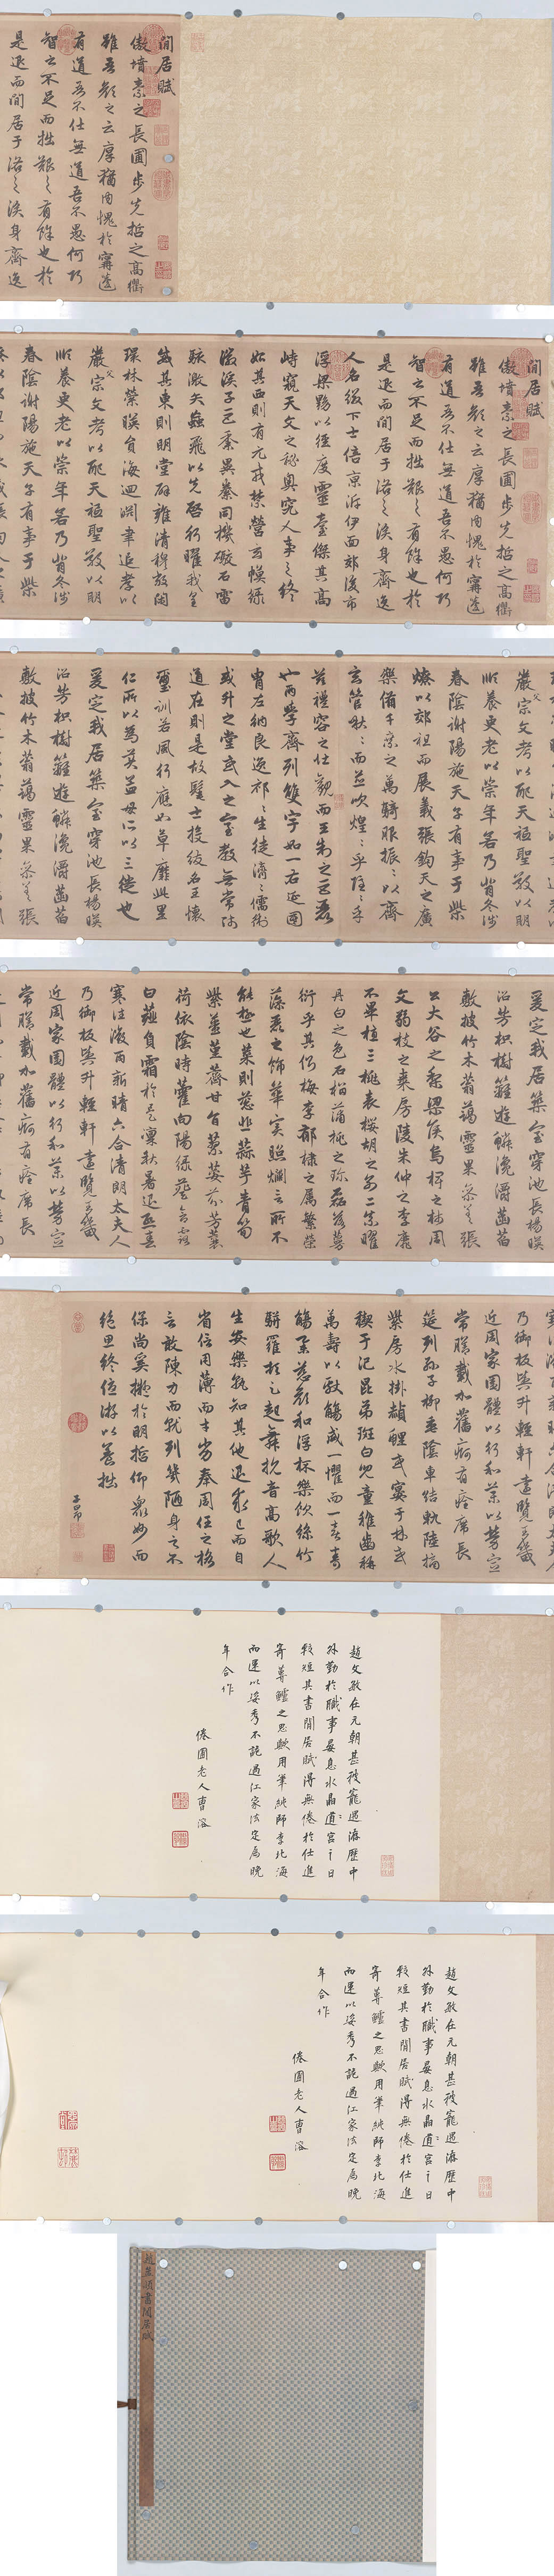 閒居賦
傲墳素之長圃步先哲之高衢
雖吾顏之云厚猶內愧於甯蘧
有道吾不仕無道吾不愚何巧
智之不足而拙艱之有餘也於
是退而閒居于洛之涘身齊逸
閒居賦
傲墳素之長圃步先哲之高衢
雖吾顏之云厚猶內愧於甯蘧
有道吾不仕無道吾不愚何巧
智之不足而拙艱之有餘也於
是退而閒居于洛之涘身齊逸
人名綴下士倍京泝伊面郊後市
浮梁黝以徑度靈臺傑其高
峙窺天文之秘奧究人事之終
始其西則有元戎禁營玄幙綠
徽溪子巨黍異絭同機礮石雷
駭激矢蝱飛以先啓行曜我皇
威其東則明堂辟雍清穆敞閑
環林縈暎員海迴淵聿追孝以
嚴父宗文考以配天秪聖敬以明
順養更老以崇年若乃背冬涉
春陰謝陽施天子有事于柴
嚴父宗文考以配天秪聖敬以明
順養更老以崇年若乃背冬涉
春陰謝陽施天子有事于柴
燎以郊祖而展義張鈞天之廣
樂備千乘之萬騎服振振以齊
玄管啾啾而並吹煌煌乎隱隱乎
茲禮容之壯觀而王制之巨麗
也兩學齊列雙宇如一右延國
胄左納良逸祁祁生徒濟濟儒術
或升之堂或入之室教無常師
道在則是故髦士投紱名王懷
璽訓若風行應如草靡此里
仁所以為美孟母所以三徙也
爰定我居築室穿池長楊暎
沼芳枳樹籬遊鱗瀺灂菡萏
敷披竹木蓊藹靈果參差張
爰定我居築室穿池長楊暎
沼芳枳樹籬遊鱗瀺灂菡萏
敷披竹木蓊藹靈果參差張
公大谷之梨梁侯烏椑之柿周
文弱枝之棗房陵朱仲之李靡
不畢植三桃表櫻胡之別二柰曜
丹白之色石榴蒲桃之珍磊落蔓
衍乎其側梅李郁棣之屬繁榮
藻麗之飾華實照爛言所不
能極也菜則蔥韭蒜芋青筍
紫薑堇薺甘旨蓼荾芬芳蘘
荷依陰時藿向陽綠葵含露
白薤負霜於是凜秋暑退熙春
寒往微雨新晴六合清朗太夫人
乃御板輿升輕軒遠覽王畿
近周家園體以行和藥以勞宣
常膳載加舊痾有痊席長
乃御板輿升輕軒遠覽王畿
近周家園體以行和藥以勞宣
常膳載加舊痾有痊席長
筵列孫子柳垂陰車結軌陸摘
紫房水掛赬鯉或宴于林或
禊于汜昆弟斑白兒童稚齒稱
萬壽以獻觴咸一懼而一喜壽
觴舉慈顏和浮杯樂飲絲竹
駢羅頓足起舞抗音高歌人
生安樂孰知其他退求己而自
省信用薄而才劣奉周任之格
言敢陳力而就列幾陋身之不
保尚奚擬於明哲仰衆妙而
絕思終優游以養拙
子昂
趙文敏在元朝甚被寵遇游歷中
外勤於職事晏息水晶道宮之日
較短其書閒居賦得無倦於仕進
寄蓴鱸之思歟用筆純師李北海
而運以姿秀不託過江家法定為晚
年合作
倦圃老人曹溶
趙文敏在元朝甚被寵遇游歷中
外勤於職事晏息水晶道宮之日
較短其書閒居賦得無倦於仕進
寄蓴鱸之思歟用筆純師李北海
而運以姿秀不託過江家法定為晚
年合作
倦圃老人曹溶
趙孟頫書閒居賦